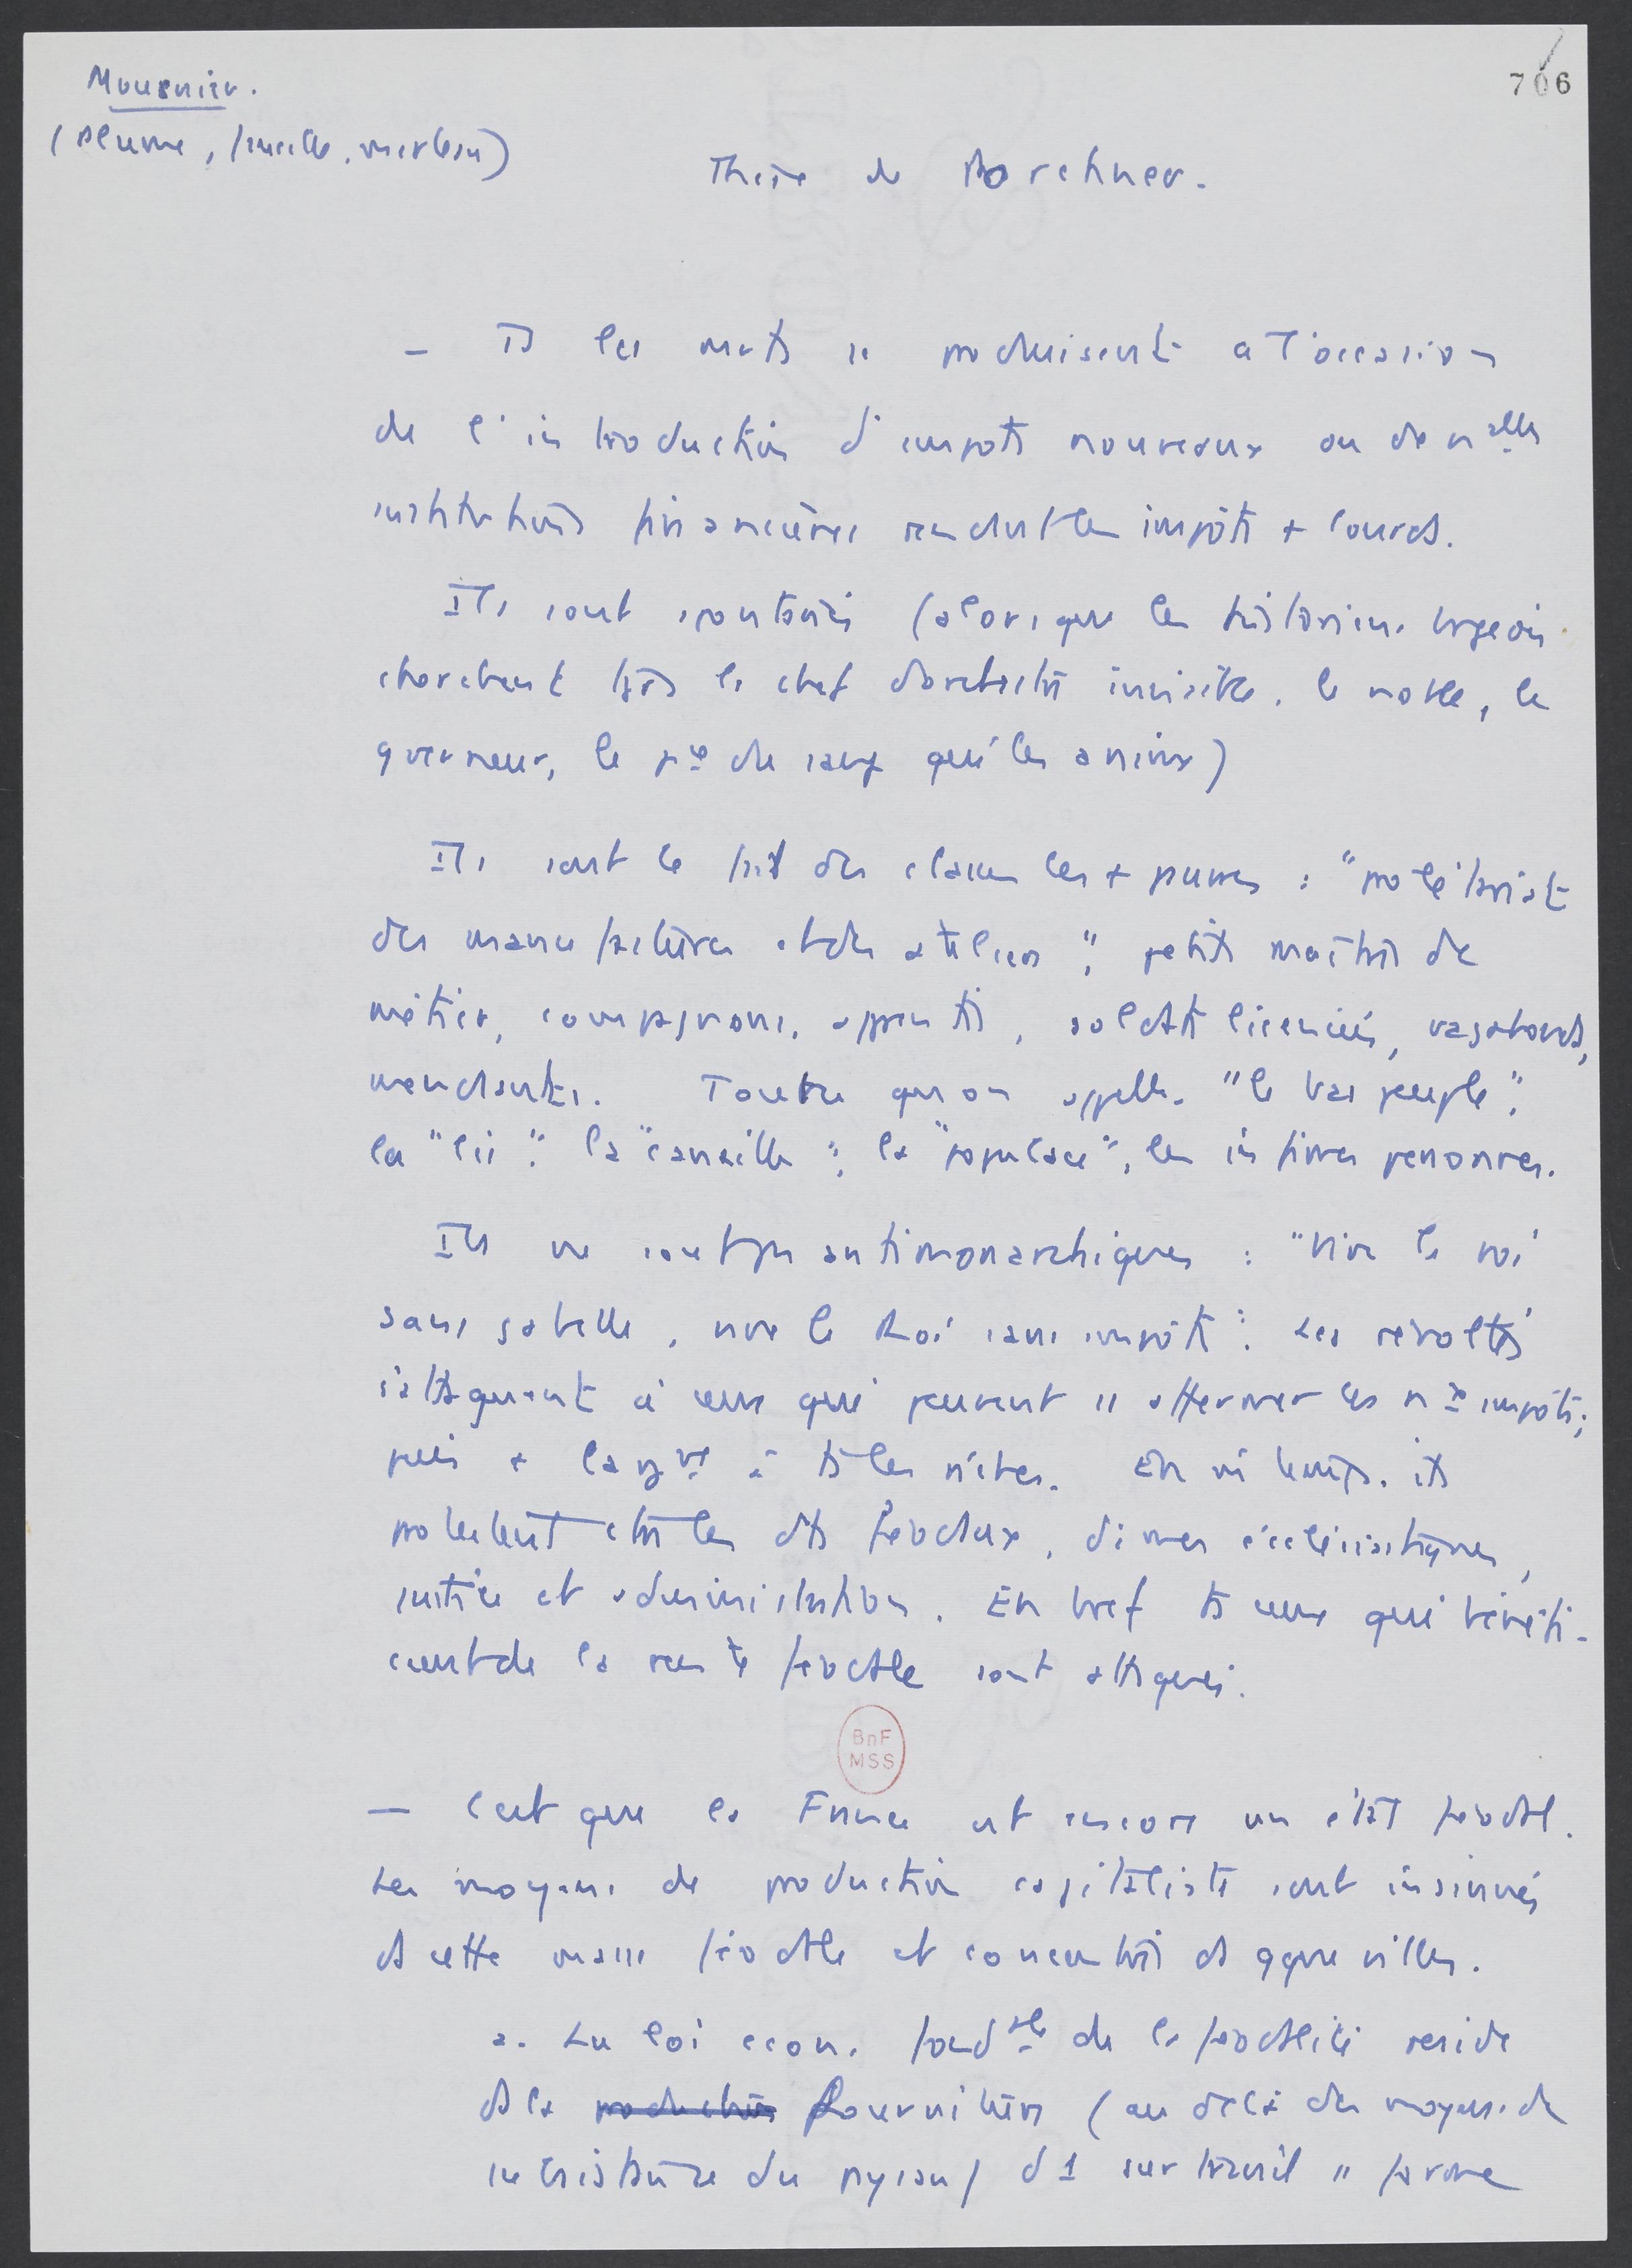 Mousnier.
706
(Plume, faucille, marteau)
Thèse de Porchnev.
– Ts les mvts se produisent à l'occasion
de l'introduction d'impots nouveaux ou de nelles
institutions financières rendant les impôts + lourds.
Ils sont spontanés (alors que les historiens brgeois
cherchent tjrs le chef d'orchestre invisible, le noble, le
gverneur, le pce de sang qui les anime)
Ils sont le fait des classes les + pauvres : "prolétariat
des manufactures et des ateliers", petits maîtres de
métier, compagnons, apprentis, soldats licenciés, vagabonds,
mendiants. Tout ce qu'on appelle "le bas peuple",
la "lie", la "canaille", la "populace", les infimes personnes.
Ils ne sont pas antimonarchiques : "Vive le roi
sans gabelle, vive le Roi sans impôts". Les révoltés
s'attaquent à ceux qui peuvent se affermer les nx impôts;
puis + largnt à ts les riches. En m temps, ils
protestent ctre les dts féodaux, dimes écclésiastiques,
justice et administration. En bref ts ceux qui bénéfi-
cient de la rente féodale sont attaqués.
BnF
MSS
— C'est que la France est encore un état féodal.
Les moyens de production capitaliste sont insinués
ds cette masse féodale et concentrés ds qque villes.
a. La loi écon. fondale de la féodalité reside
ds la production fourniture (au delà des moyens de
subsistance du paysan) d'1 surtravail ss forme